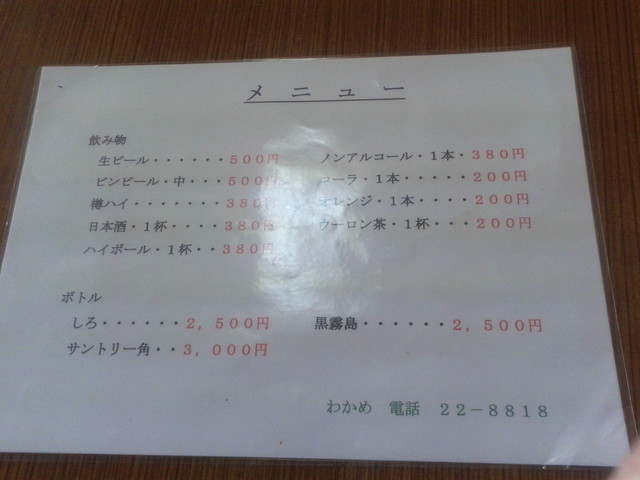 メニュー
飲み物
生ビール・・・・・・５００円
ビンビール・中・・・５００円
樽ハイ・・・・・・・３８０円
日本酒・１杯・・・・３８０円
ハイボール・１杯・・３８０円
ノンアルコール・１本・３８０円
コーラ・１本・・・・・２００円
オレンジ・１本・・・・２００円
ウーロン茶・１杯・・・２００円
ボトル
しろ・・・・・・２，５００円
サントリー角・・３，０００円
黒霧島・・・・・・２，５００円
わかめ　電話　２２－８８１８